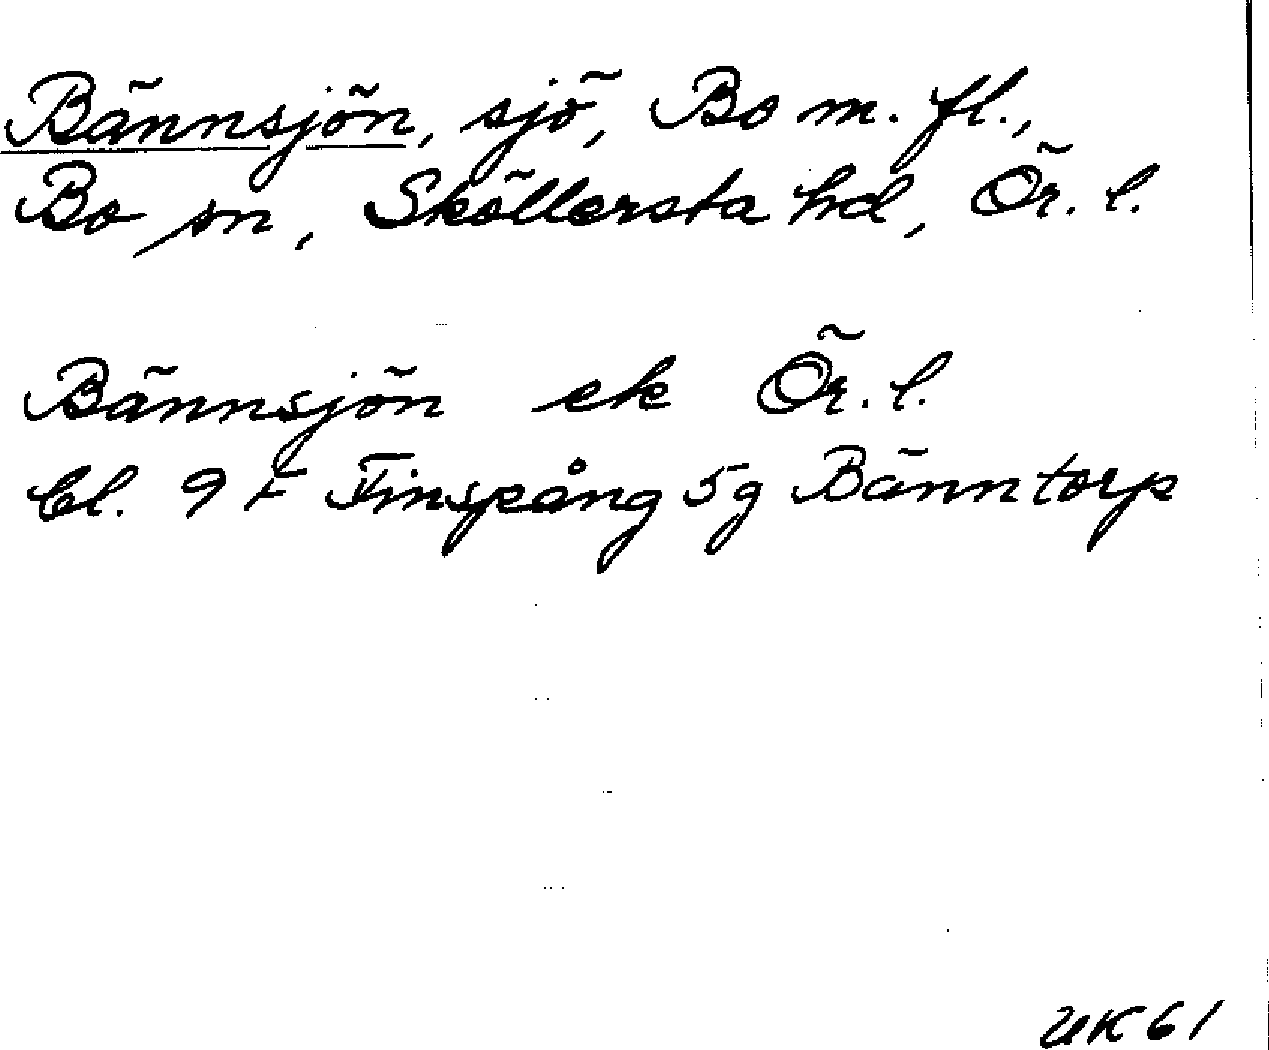 Bännsjön, sjö, Bo m. fl.,
Bo sn, Sköllersta hd, Ör. l.
Bännsjön ek Ör. l.
bl. 9 F Finspång 5g Bänntorp
UK61